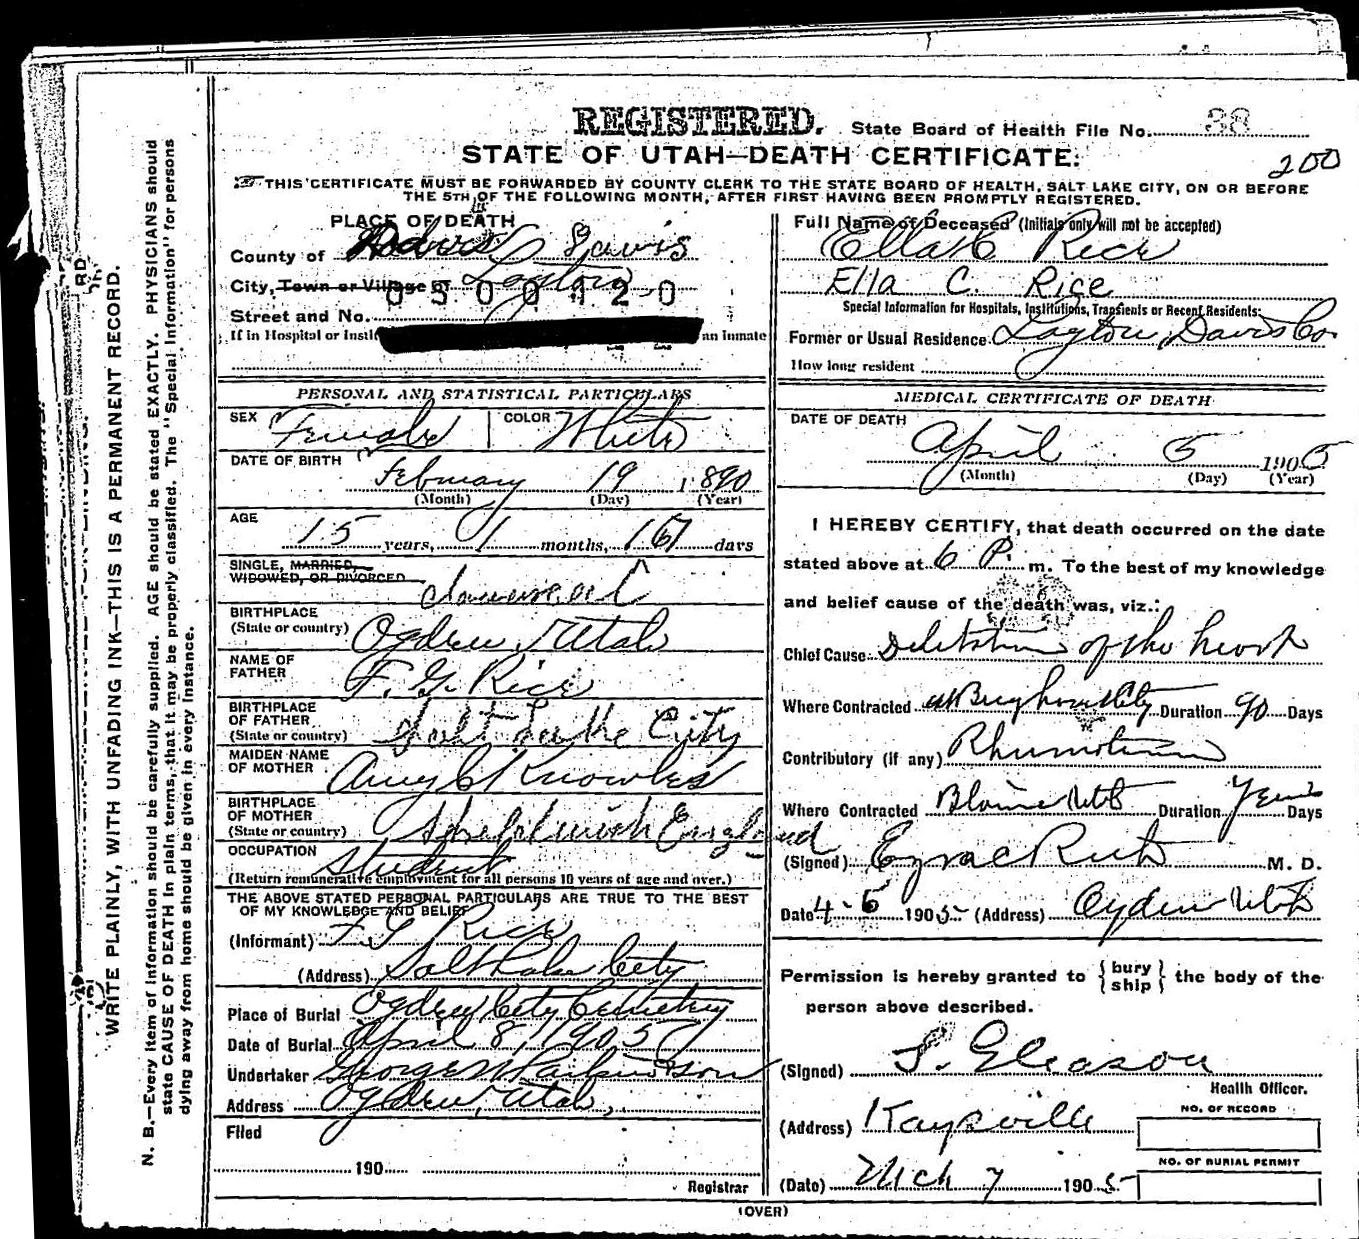 REGISTERED. State Board of Health File No. 38
200
STATE OF UTAH—DEATH CERTIFICATE.
THIS CERTIFICATE MUST BE FORWARDED BY COUNTY CLERK TO THE STATE BOARD OF HEALTH, SALT LAKE CITY, ON OR BEFORE
THE 5TH OF THE FOLLOWING MONTH, AFTER FIRST HAVING BEEN PROMPTLY REGISTERED.
WRITE PLAINLY, WITH UNFADING INK—THIS IS A PERMANENT RECORD.
N. B.—Every item of information should be carefully supplied. AGE should be stated EXACTLY. PHYSICIANS should
state CAUSE OF DEATH in plain terms, that it may be properly classified. The "Special Information" for persons
dying away from home should be given in every instance.
PLACE OF DEATH
County of Davis
City, Town or Village of Layton
0500120
Street and No.
If in Hospital or Insti an inmate
PERSONAL AND STATISTICAL PARTICULARS
SEX Female COLOR White
DATE OF BIRTH
February 19 1890
(Month) (Day) (Year)
AGE
15 years, 1 months, days
SINGLE, MARRIED,
WIDOWED, OR DIVORCED
BIRTHPLACE
(State or country) Ogden Utah
NAME OF
FATHER F. G. Rice
BIRTHPLACE
OF FATHER
(State or country) Salt Lake City
MAIDEN NAME
OF MOTHER Amy C Knowles
BIRTHPLACE
OF MOTHER
(State or country) England
OCCUPATION
Student
(Return remunerative employment for all persons 10 years of age and over.)
THE ABOVE STATED PERSONAL PARTICULARS ARE TRUE TO THE BEST
OF MY KNOWLEDGE AND BELIEF
(Informant) F G Rice
(Address) Salt Lake City
Place of Burial Ogden City Cemetery
Date of Burial April 8, 1905
Undertaker George W Parkinson
Address Ogden, Utah,
Filed
190
Registrar
Full Name of Deceased (Initials only will not be accepted)
Ella C Rice
Ella C. Rice
Special Information for Hospitals, Institutions, Transients or Recent Residents:
Former or Usual Residence Layton, Davis Co
How long resident
MEDICAL CERTIFICATE OF DEATH
DATE OF DEATH
April 5 1905
(Month) (Day) (Year)
I HEREBY CERTIFY, that death occurred on the date
stated above at 6 P. m. To the best of my knowledge
and belief cause of the death was, viz.:
Chief Cause Diletation of the heart
Where Contracted at Brigham City Duration 90 Days
Contributory (if any) Rhumatism
Where Contracted Utah Duration Years Days
(Signed) Ezra C Rich M. D.
Date 4-6 1905 (Address) Ogden Utah
Permission is hereby granted to { bury ship } the body of the
person above described.
(Signed) S. Gleason
Health Officer.
(Address) Kaysville
NO. OF RECORD
NO. OF BURIAL PERMIT
(Date) Mch 7 1905
(OVER)